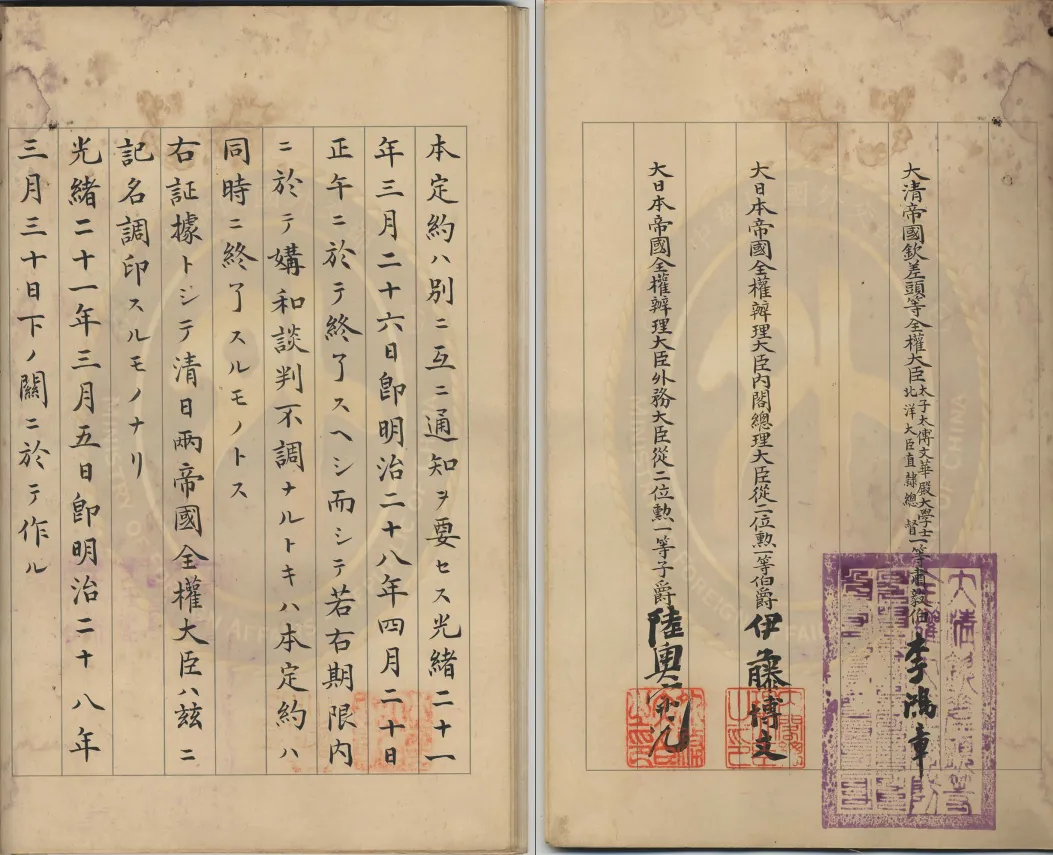 本定約ハ別ニ互ニ通知ヲ要セス光緒二十一
年三月二十六日卽明治二十八年四月二十日
正午ニ於テ終了スヘシ而シテ若右期限内
ニ於テ媾和談判不調ナルトキハ本定約ハ
同時ニ終了スルモノトス
右証據トシテ清日兩帝國全權大臣ハ茲ニ
記名調印スルモノナリ
光緒二十一年三月五日卽明治二十八年
三月三十日下ノ關ニ於テ作ル
大清帝國欽差頭等全權大臣太子太傅文華殿大學士北洋大臣直隸總督一等肅毅伯李鴻章
大日本帝國全權辦理大臣内閣總理大臣從二位勲一等伯爵伊藤博文
大日本帝國全權辦理大臣外務大臣從二位勲一等子爵陸奧宗光